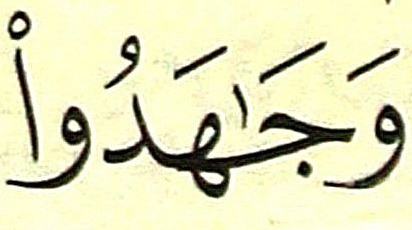 وَجَٰهَدُوا۟